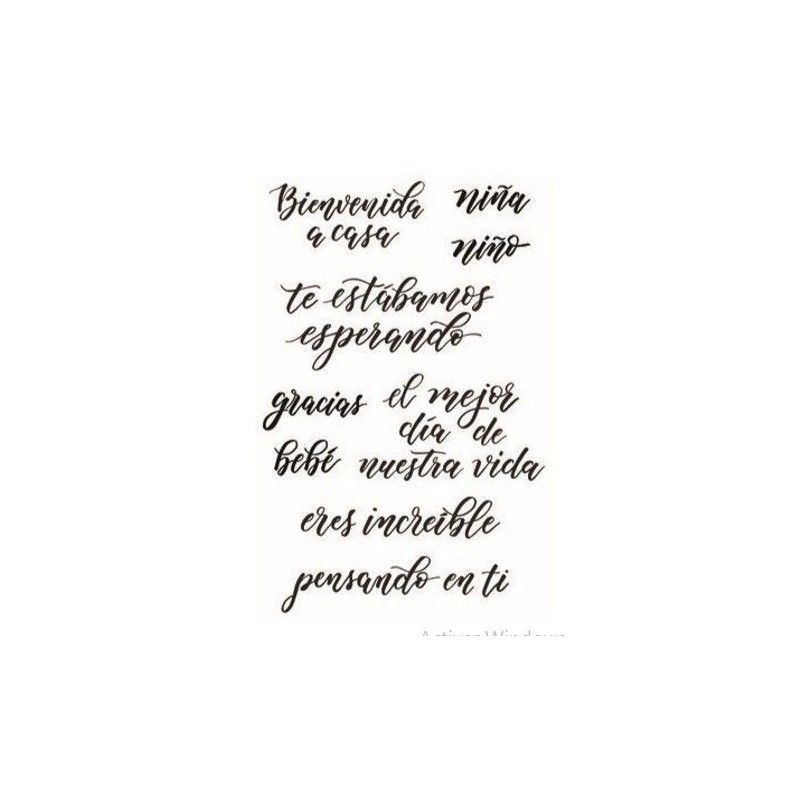 Bienvenida
a casa
niña
niño
te estábamos
esperando
gracias
el mejor
día de
nuestra vida
bebé
eres increíble
pensando en ti